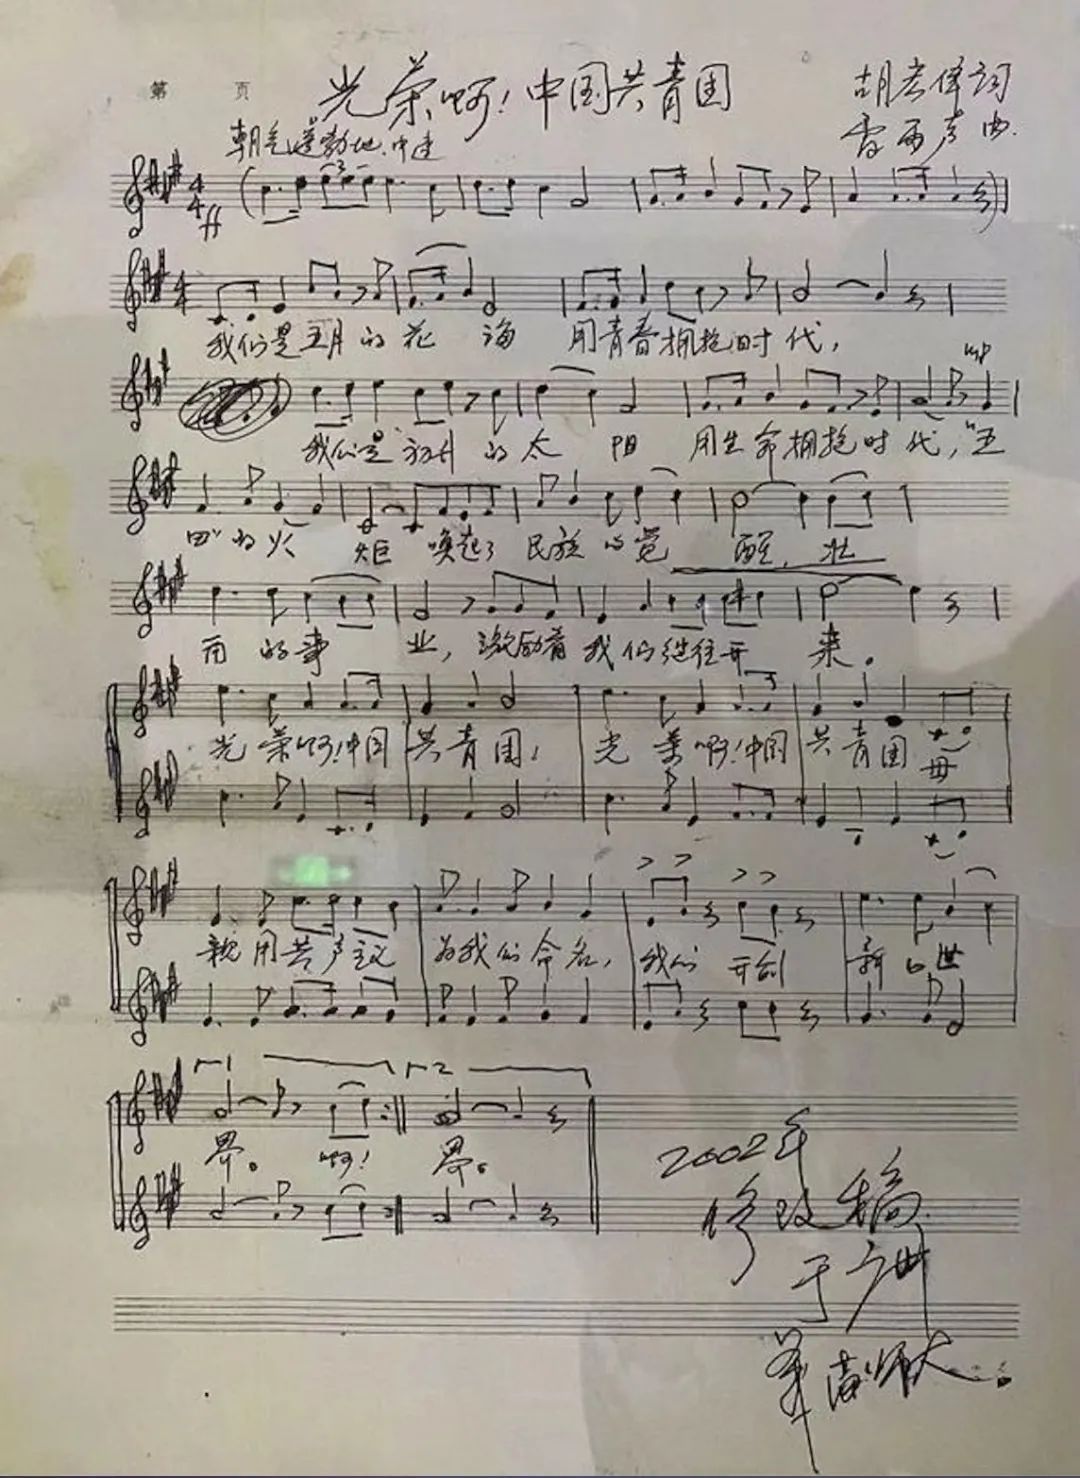 第 页
光荣啊！中国共青团
胡宏伟词
雷雨声曲.
朝气蓬勃地.中速
4 4 ff 3
4 4
我们是五月的花 海 用青春拥抱时代，
mp
我们是初升的太 阳 用生命拥抱时代，“五
四”的火 炬 唤起了民族的觉 醒，壮
丽的事 业，激励着我们继往开 来。
光荣啊！中国共青团！ 光荣啊！中国共青团 母
亲用共产主义 为我们命名， 我们开创 新的世
1 2
界。啊！ 界。
2002年
修改稿.
于广州
华南师大